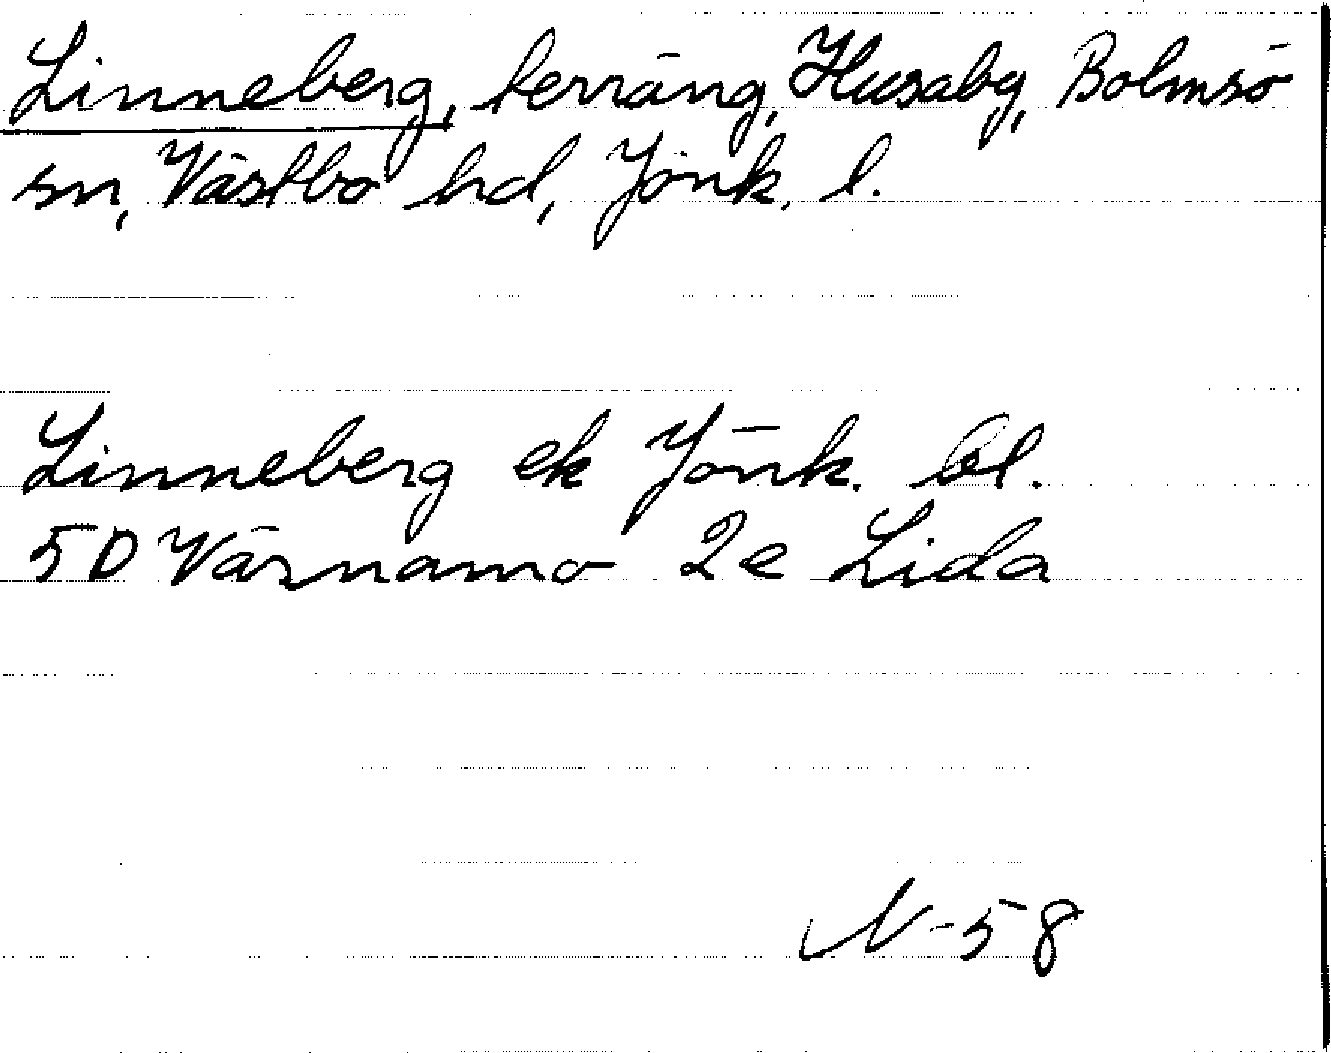 Linneberg, terräng, Husaby, Bolmsö
sn, Västbo hd, Jönk. l.
Linneberg ek Jönk. bl.
5D Värnamo 2e Lida
N-58